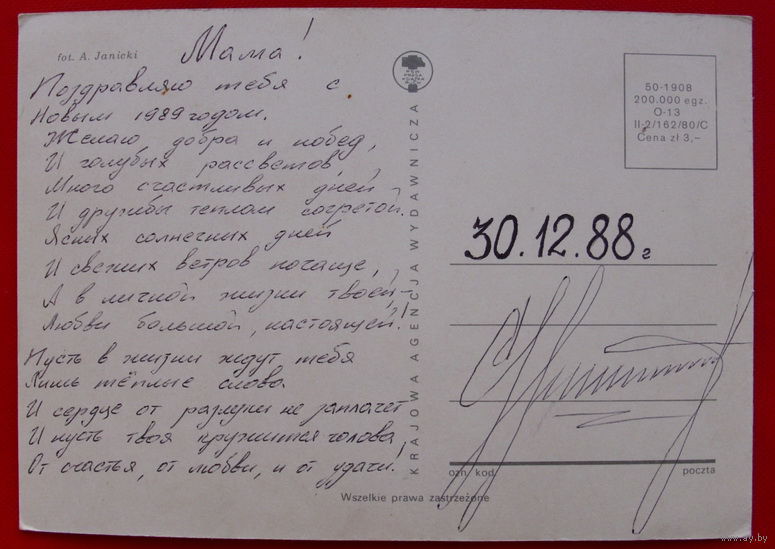 fot. A. Janicki
Мама!
Поздравляю тебя с
Новым 1989 годом.
Желаю добра и побед,
И голубых рассветов,
Много счастливых дней
И дружбы теплом согретой.
Ясных солнечных дней
И свежих ветров почаще,
А в личной жизни твоей –
Любви большой, настоящей!
Пусть в жизни ждут тебя
Лишь тёплые слова
И сердце от разлуки не заплачет
И пусть твоя кружится голова
От счастья, от любви, и от удачи!
KRAJOWA AGENCJA WYDAWNICZA
50-1908
200.000 egz.
O-13
II-2/162/80/C
Cena zł 3,–
30.12.88 г
ozn. kod.
poczta
Wszelkie prawa zastrzeżone
www.ay.by